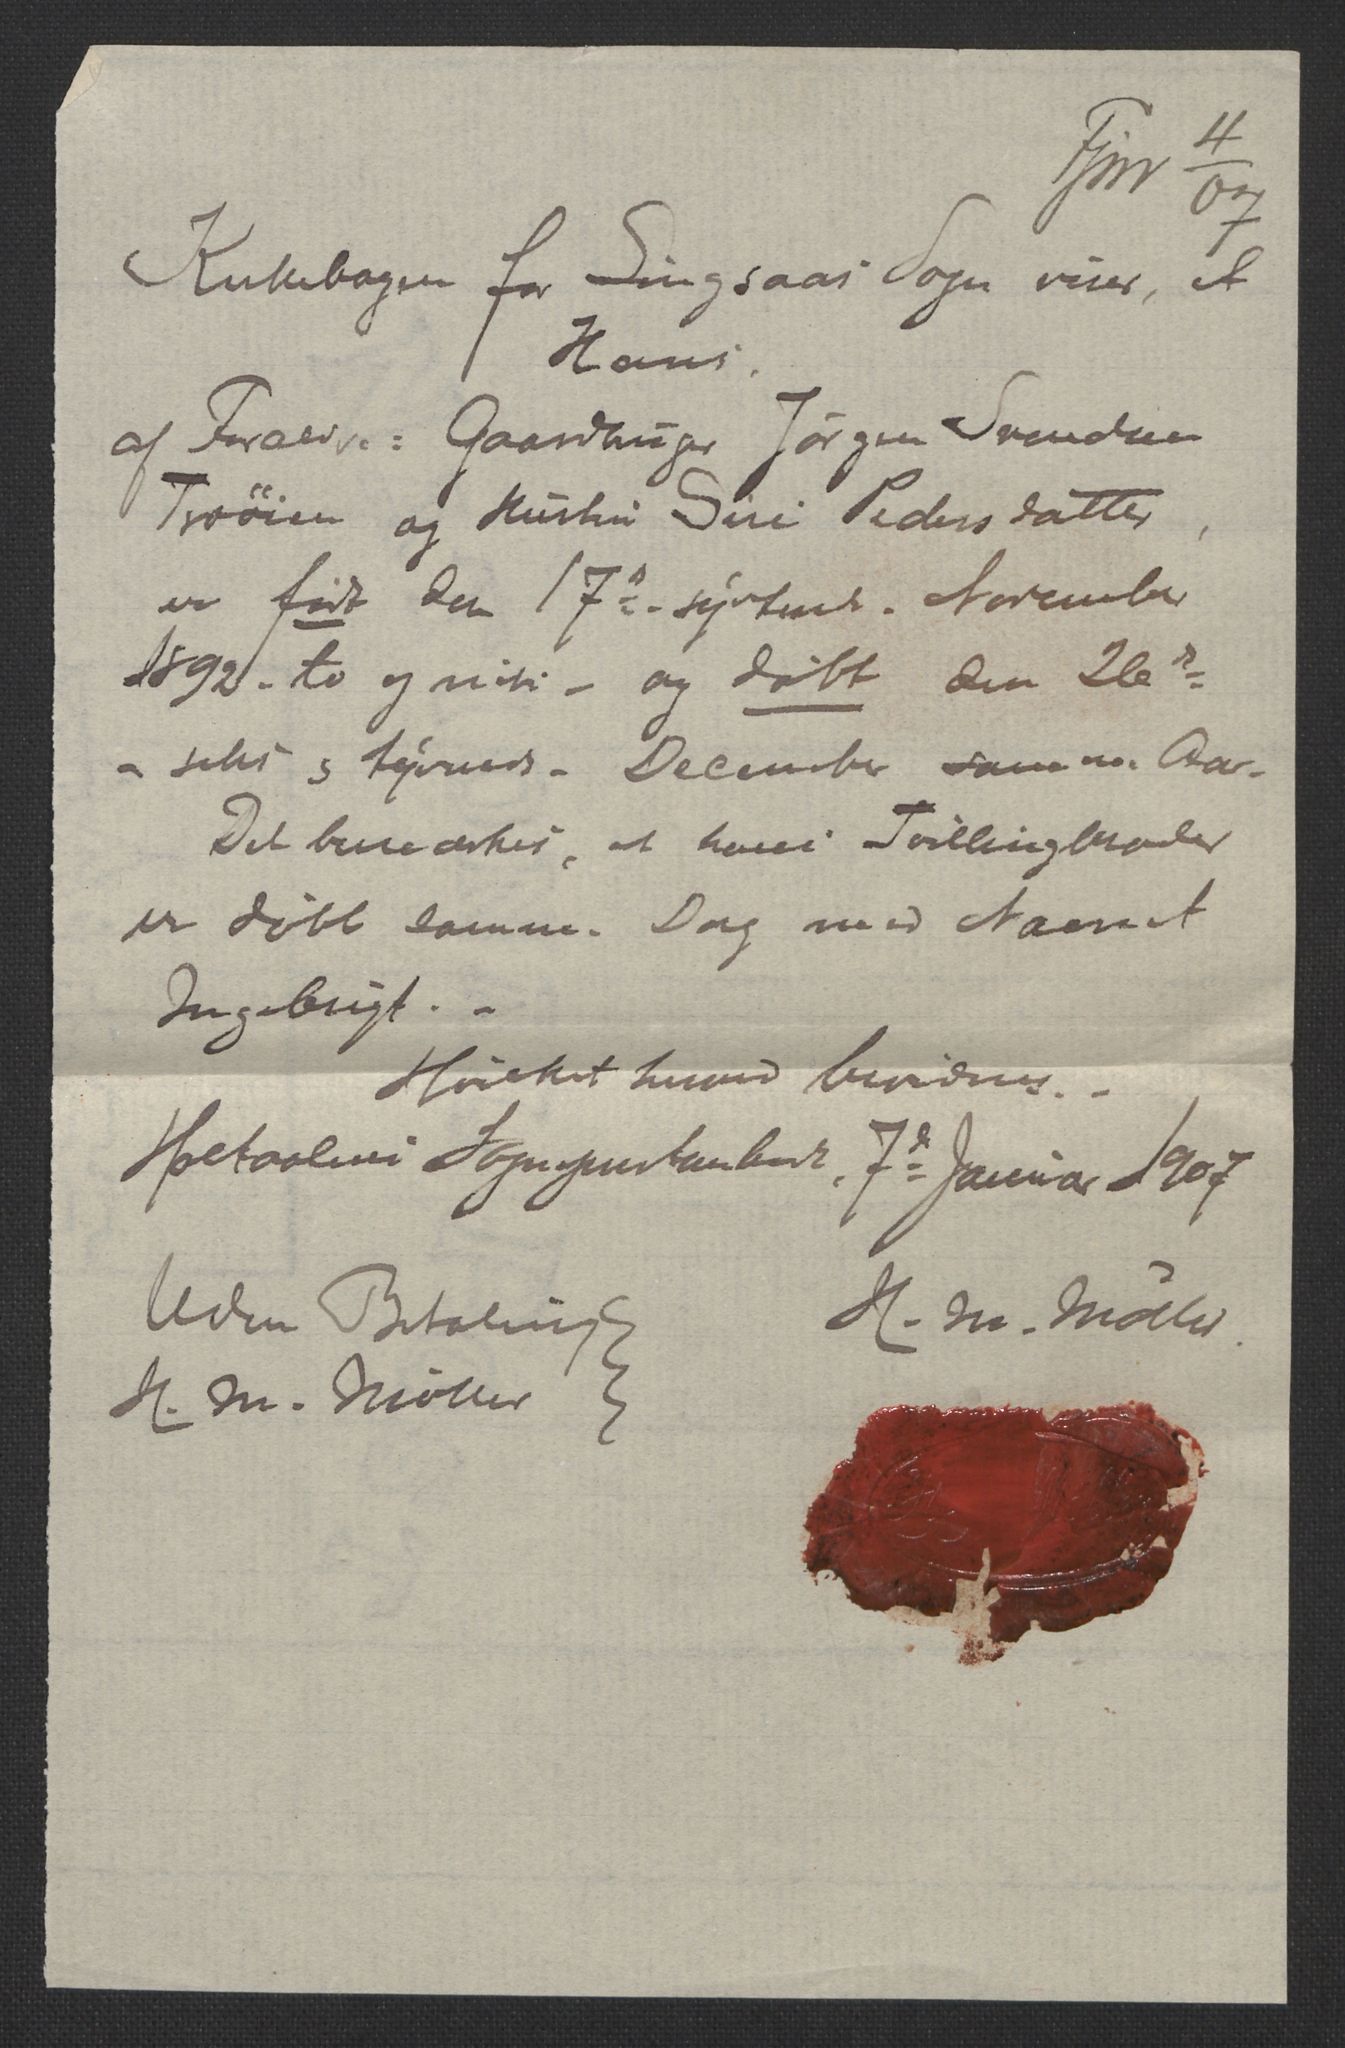 4/07
Kirkebogen for Singsaas Sogn viser, at
Hans,
af Forældre: Gaardbruger Jörgen Svendsen
Tröien og Hustru Siri Pedersdatter,
er födt den 17de - syttende - November
1892 - to og niti - og döbt den 26de
- seks og tyvende - December samme Aar.
Det bemærkes, at hans Tvillingbroder
er döbt samme Dag med Navnet
Ingebrigt. -
Hvilket herved bevidnes. -
Holtaalens Sogneprestembede, 7de Januar 1907
H. M. Möller.
Uden Betaling
H. M. Möller